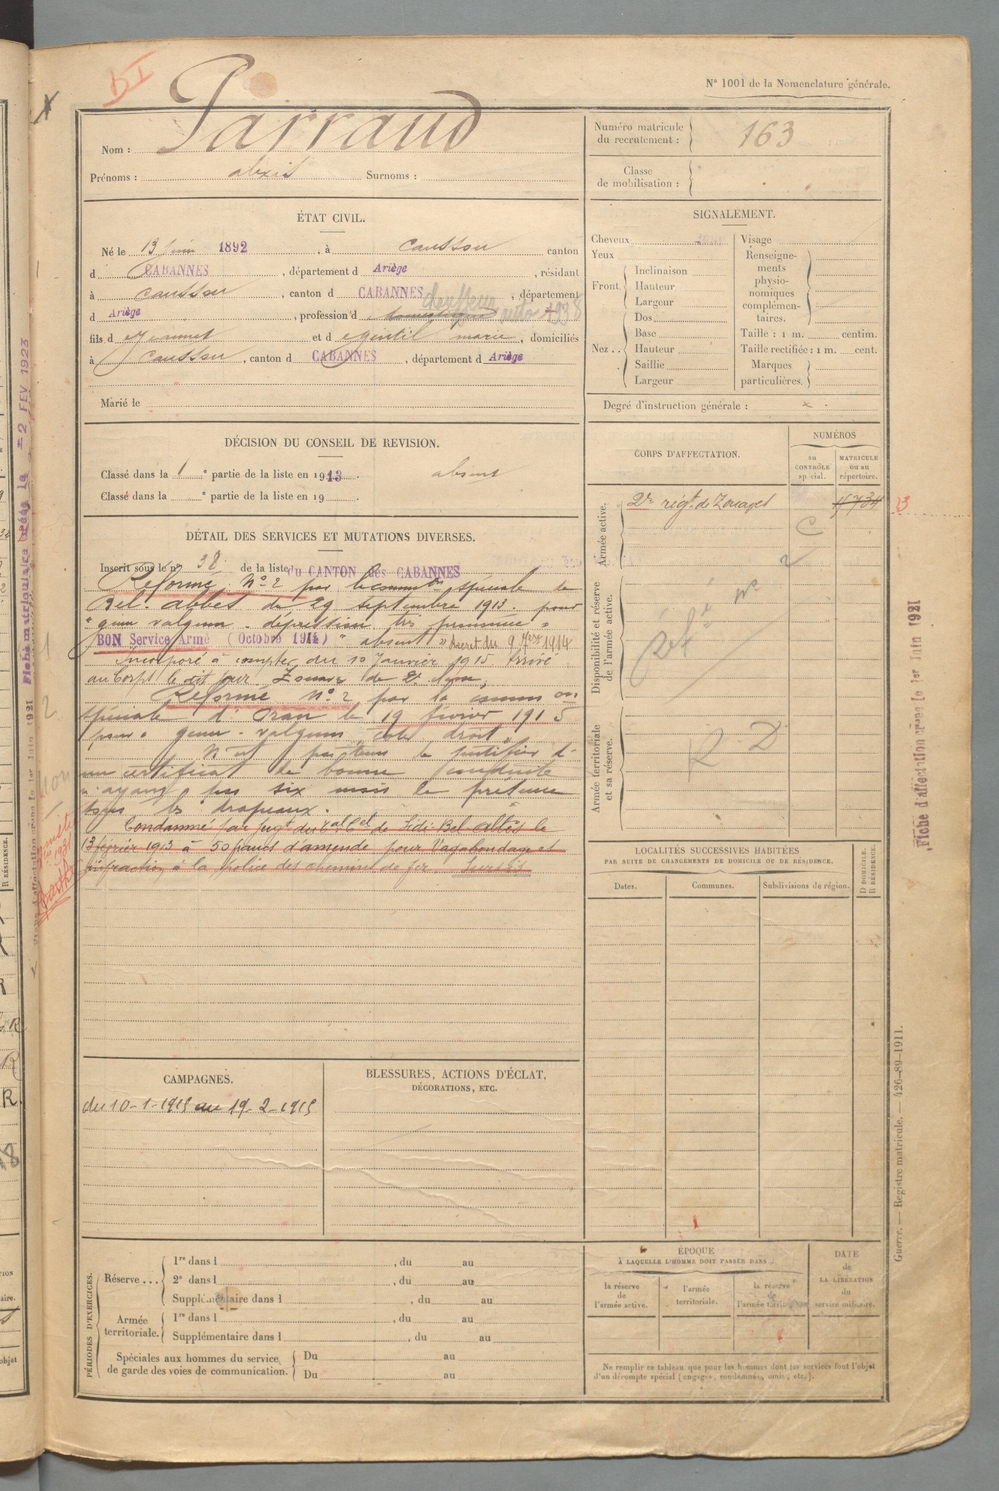 N° 1001 de la Nomenclature générale.
Nom : Parraud
Prénoms : alexis Surnoms :
Numéro matricule du recrutement : 163
Classe de mobilisation :
ÉTAT CIVIL.
Né le 13 juin 1892, à Caussou canton
d CABANNES, département d Ariège, résidant
à Caussou, canton d CABANNES, département
d Ariège, profession d
fils d Jeannet et d Gentil marie, domiciliés
à Caussou, canton d CABANNES, département d Ariège
Marié le
SIGNALEMENT.
Cheveux
Yeux
Front.
Inclinaison
Hauteur
Largeur
Dos
Nez..
Base
Hauteur
Saillie
Largeur
Visage
Renseigne-
ments
physio-
nomiques
complémen-
taires.
Taille : 1 m. centim.
Taille rectifiée : 1 m. cent.
Marques
particulières.
Degré d'instruction générale :
DÉCISION DU CONSEIL DE REVISION.
Classé dans la 1 e partie de la liste en 1913. absent
Classé dans la e partie de la liste en 19
CORPS D'AFFECTATION.
NUMÉROS
au CONTRÔLE spécial.
MATRICULE ou au répertoire.
Armée active.
2e régt de Zouaves
Disponibilité et réserve de l'armée active.
Réfé n° 2
Armée territoriale et sa réserve.
R D
DÉTAIL DES SERVICES ET MUTATIONS DIVERSES.
Inscrit sous le n° 38 de la liste du CANTON des CABANNES
Réformé N° 2 par la commission spéciale de
Bel. abbès du 29 septembre 1913. pour
"genu valgum. dépression très prononcée"
BON Service Armé (Octobre 1914) "absent" Décret du 9 7bre 1914
Incorporé à compter du 10 Janvier 1915 arrivé
au Corps le dit jour Zouave de 2e classe,
Réformé N° 2 par la commission
spéciale d'Oran le 19 février 1915
pour "genu-valgum côté droit"
N'eut pas tenu de justifier d'
un certificat de bonne conduite
n'ayant pas six mois de présence
sous les drapeaux.
Condamné par jugt du de Sidi-Bel-Abbès le
13 février 1913 à 50 francs d'amende pour Vagabondage et
infraction à la police des chemins de fer Sursis
LOCALITÉS SUCCESSIVES HABITÉES
PAR SUITE DE CHANGEMENTS DE DOMICILE OU DE RÉSIDENCE.
Dates. Communes. Subdivisions de région. D DOMICILE. R RÉSIDENCE.
CAMPAGNES.
du 10-1-1915 au 19-2-1915
BLESSURES, ACTIONS D'ÉCLAT,
DÉCORATIONS, ETC.
PÉRIODES D'EXERCICES.
Réserve...
1re dans l , du au
2e dans l , du au
Supplémentaire dans l , du au
Armée territoriale.
1re dans l , du au
Supplémentaire dans l , du au
Spéciales aux hommes du service
de garde des voies de communication.
Du au
Du au
ÉPOQUE
À LAQUELLE L'HOMME DOIT PASSER DANS :
la réserve de l'armée active.
l'armée territoriale.
la réserve de l'armée territoriale
DATE de LA LIBÉRATION du service militaire.
Ne remplir ce tableau que pour les hommes dont les services font l'objet
d'un décompte spécial (engagés, condamnés, omis, etc.).
Guerre. — Registre matricule. — 426-89-1911.
Fiche d'affectation créée le 1er Juin 1921
Fiche matriculaire créée le -2 FEV 1923